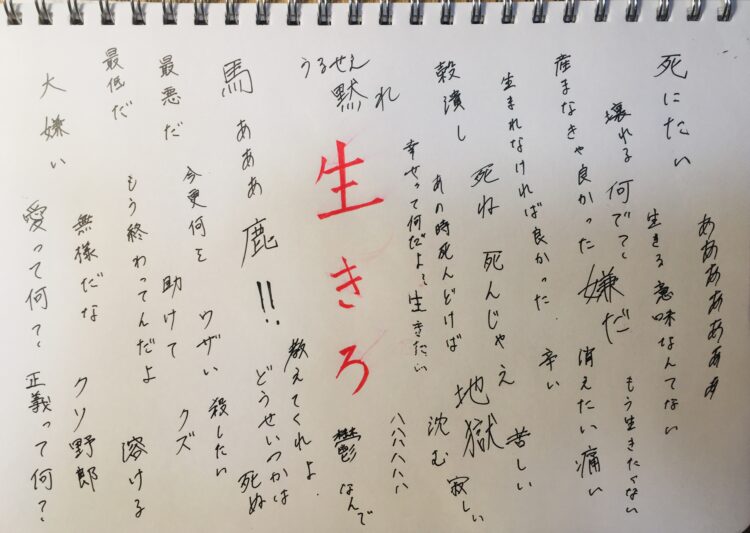 死にたい
ああああああああ
壊れる
何でて、
生きる意味なんてない
産まなきゃ良かった
嫌だ
もう生きたくない
消えたい
痛い
生まれなければ良かった
辛い
苦しい
穀潰し
死ね
死んじゃえ
地獄
寂しい
あの時死んどけば
沈む
幸せって何だよ?
生きたい
ハハハハハハ
うるせえ
黙れ
生きろ
鬱
なんで
馬
あああ
鹿!!
教えてくれよ
どうせいつかは
死ぬ
最悪だ
今更何を
ウザい
殺したい
助けて
クズ
最低だ
もう終わってんだよ
溶ける
無様だな
クソ野郎
大嫌い
愛って何?
正義って何?